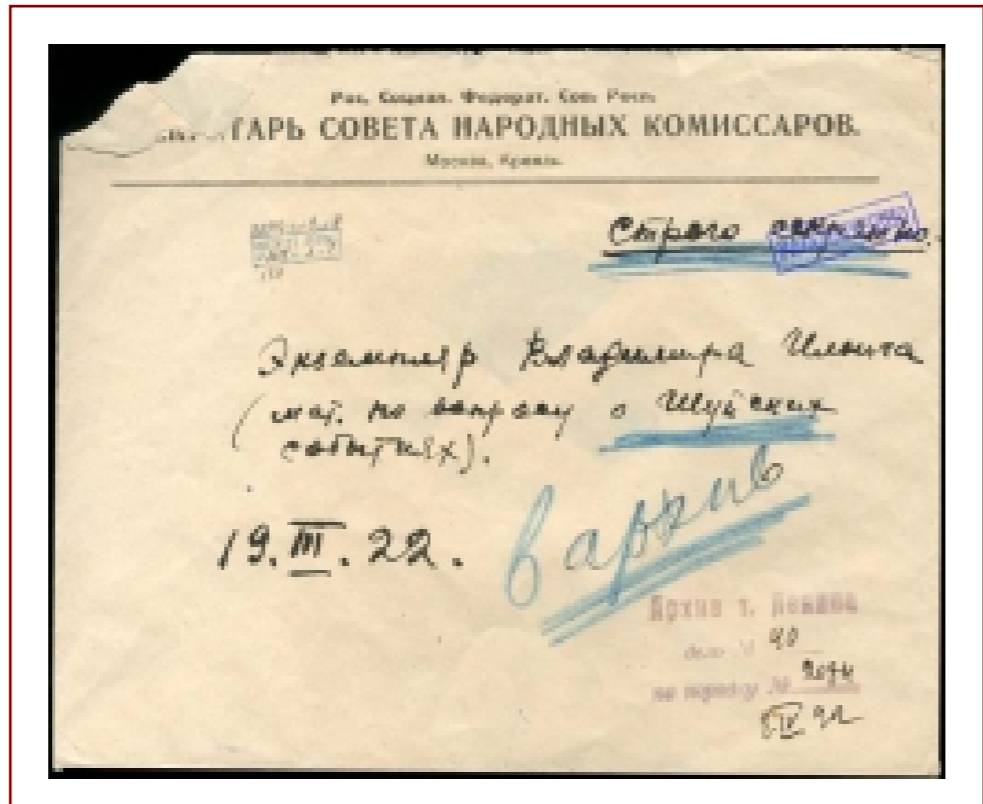 Рос. Социал. Федерат. Сов. Респ.
СОВЕТА НАРОДНЫХ КОМИССАРОВ.
Москва, Кремль.
Строго секретно.
Экземпляр Владимира Ильича
(мат. по вопросу о Шуйских
событиях).
19.III.22.
в архив
Архив т. Ленина
дело № 40
по порядку №